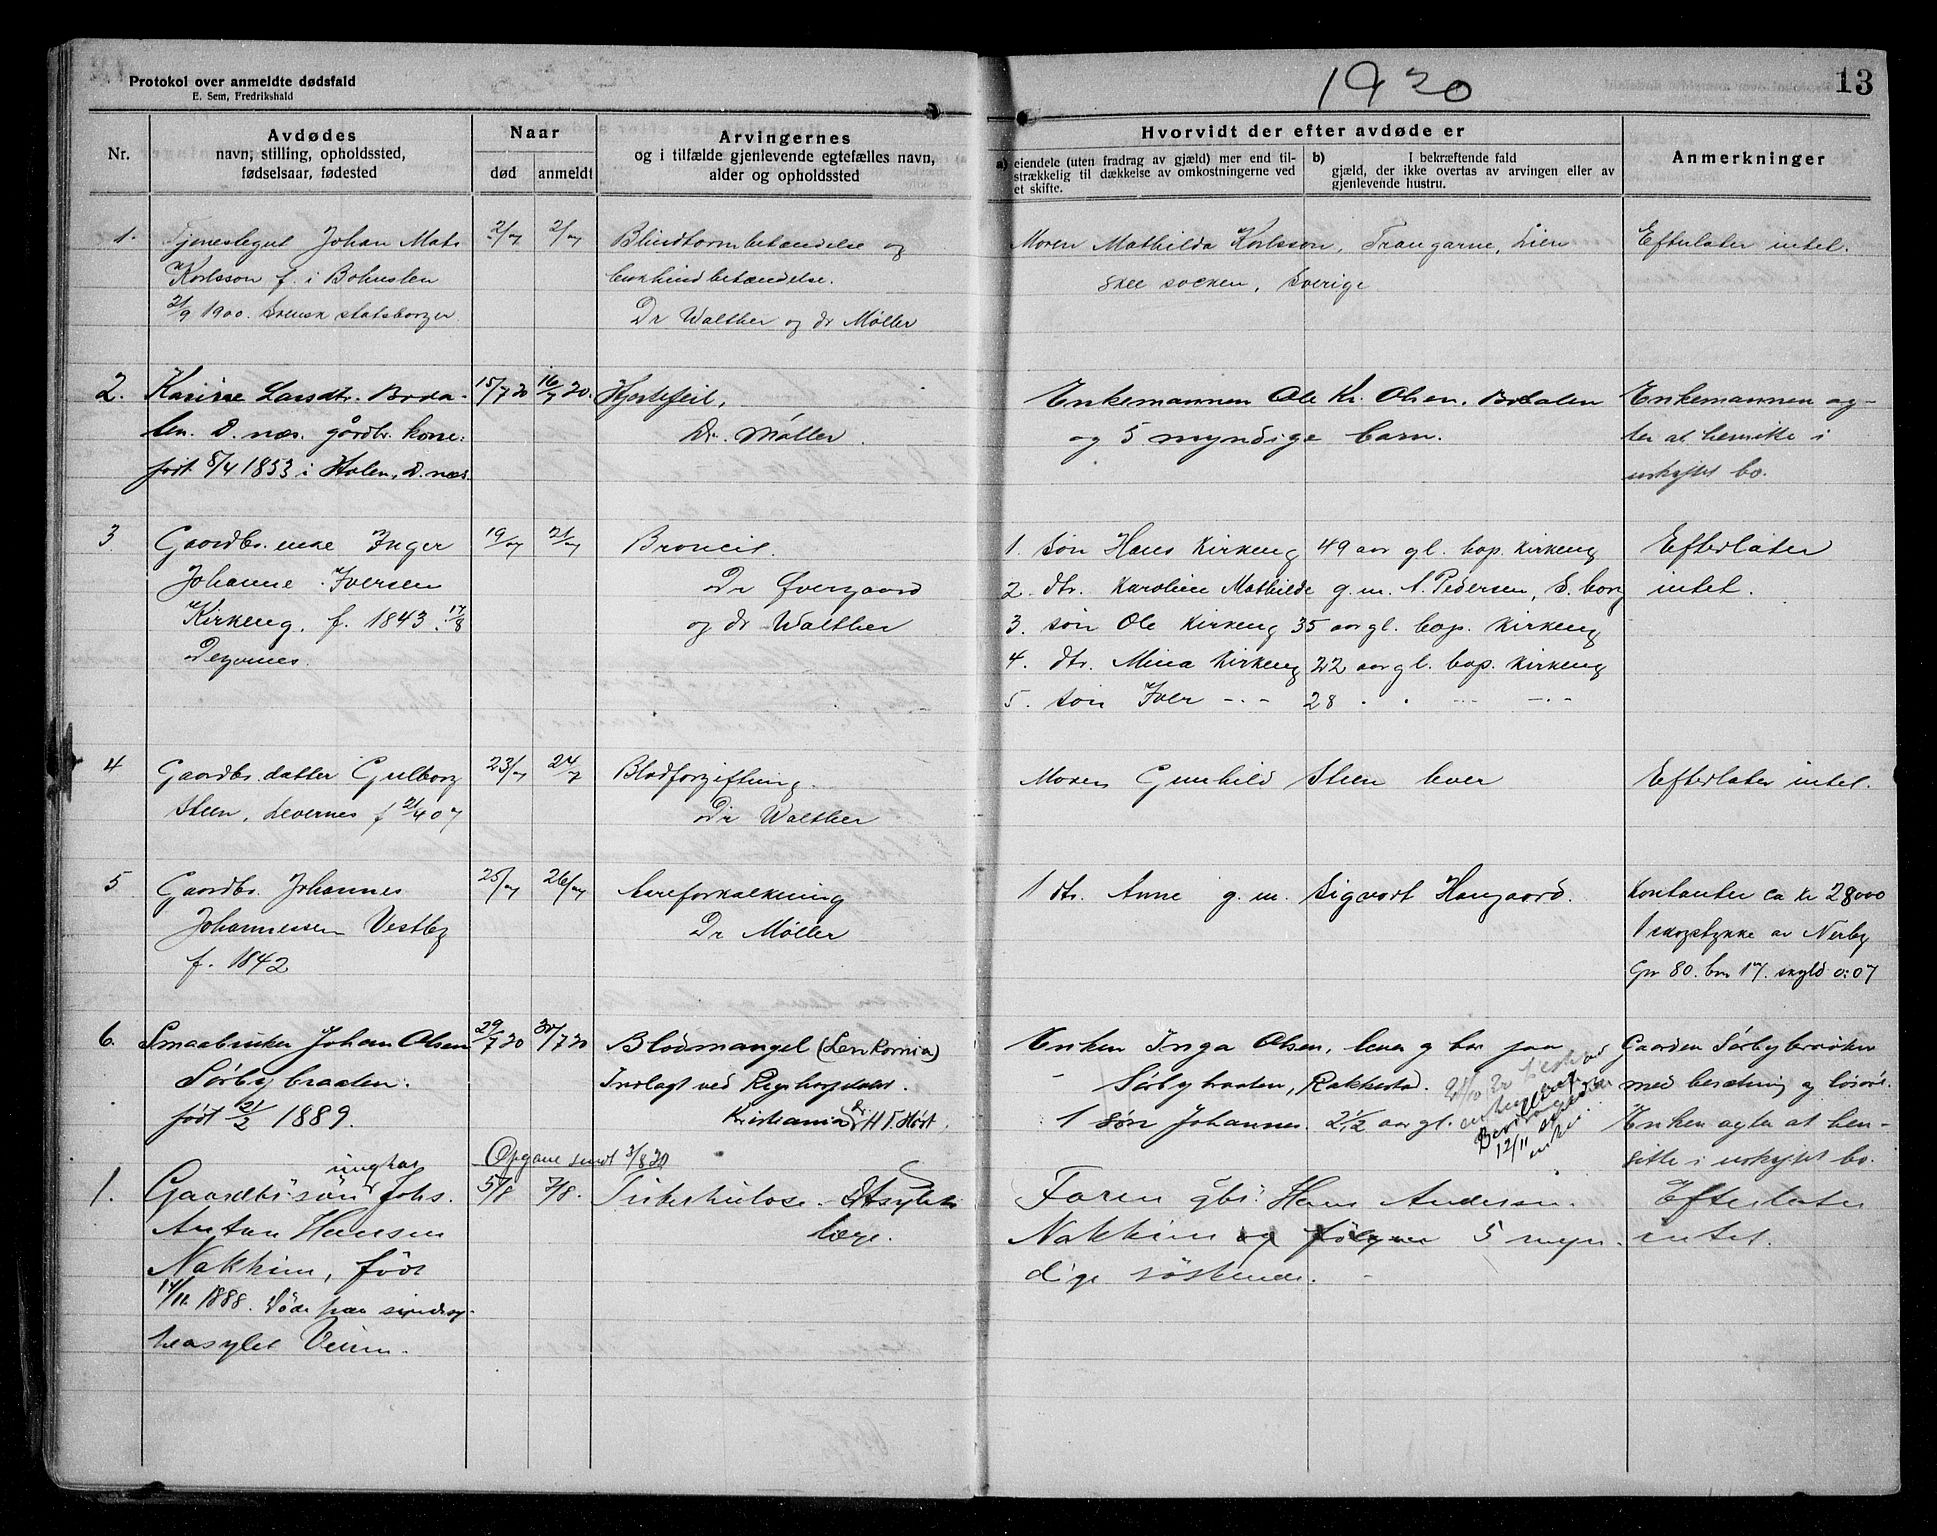 Protokol over anmeldte dødsfald
E. Sem, Fredrikshald
1920
13
Nr.
Avdødes
navn, stilling, opholdssted,
fødselsaar, fødested
Naar
død
anmeldt
Arvingernes
og i tilfælde gjenlevende egtefælles navn,
alder og opholdssted
Hvorvidt der efter avdøde er
a) eiendele (uten fradrag av gjæld) mer end til-
strækkelig til dækkelse av omkostningerne ved
et skifte.
b) I bekræftende fald
gjæld, der ikke overtas av arvingen eller av
gjenlevende hustru.
Anmerkninger
1. Tjenestegut Johan Mats
Karlsson f. i Bohuslen
21/9 1900. Svensk statsborger.
2/7
2/7
Blindtarmbetændelse og
bukhindbetændelse.
Dr Walther og dr Møller
Moren Mathilda Karlsson, Lien
skee socken, Sverige
Efterlater intet.
2. Larsdtr. Boda-
len. D. næs. gårdbr. kone:
født 8/4 1853 i Holen, D. næs.
15/7 20
16/7 20.
Hjertefeil,
Dr. Møller.
Enkemannen Ole Kr. Olsen, Bodalen
og 5 myndige barn.
Enkemannen ag-
ter at i
uskiftet bo.
3
Gaardbr. enke Inger
Johanne Iversen
Kirkeng, f. 1843 17/8
Degernes.
19/7
21/7
Broncit.
Dr Overgaard
og dr Walther
1. søn Hans Kirkeng 49 aar gl. bop. Kirkeng
2. dtr. Karoline Mathilde g. m. A. Pedersen, S. borg
3. søn Ole Kirkeng 35 aar gl. bop. Kirkeng
4. dtr. Mina Kirkeng 22 aar gl. bop. Kirkeng
5. søn Iver -.- 28 . . -.- -.-
Efterlater
intet.
4
Gaardbr. datter Gulborg
Steen, Levernes f 21/4 07
23/7
24/7
Blodforgiftning.
Dr Walther
Moren Gunhild Steen lever
Efterlater intet.
5
Gaardbr. Johannes
Johannessen Vestby
f. 1842
25/7
26/7
Aareforkalkning
Dr Møller
1 dtr. Anne g. m. Sigvart Haugaard.
Kontanter ca kr 28000
1 skogstykke av Nerby
Gnr 80. bnr 17. skyld 0:07
6. Smaabruker Johan Olsen
Sørbybraaten.
født 21/2 1889.
29/7 20
30/7 20
Blodmangel
Indlagt ved Rigshospitalet.
Kristiania Dr H F. Høst.
Enken Inga Olsen, lever og bor paa
Sørbybraaten, Rakkestad.
1 søn Johannes. 2 1/2 aar gl.
12/11
Gaarden Sørbybraaten
med besætning og løsøre.
Enken agter at hen-
sitte i uskiftet bo.
Opgave sendt 3/8 20
1.
ungkar
Gaardbr. søn Johs.
Anton Hansen
Nakkim, født
14/11 1888. Døde paa sindssy-
keasylet Veum.
5/8
7/8.
Tuberkulose. Asylets
læge.
Faren gbr. Hans Andersen
Nakkim og 5 myn-
dige søskende.
Efterlater
intet.